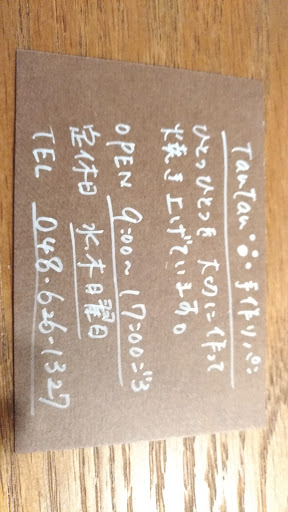 TanTan 手作りパン
ひとつひとつを 大切に作って
焼き上げています。
OPEN 9:00〜17:00ごろ
定休日 水木日曜日
TEL 048・626-1327